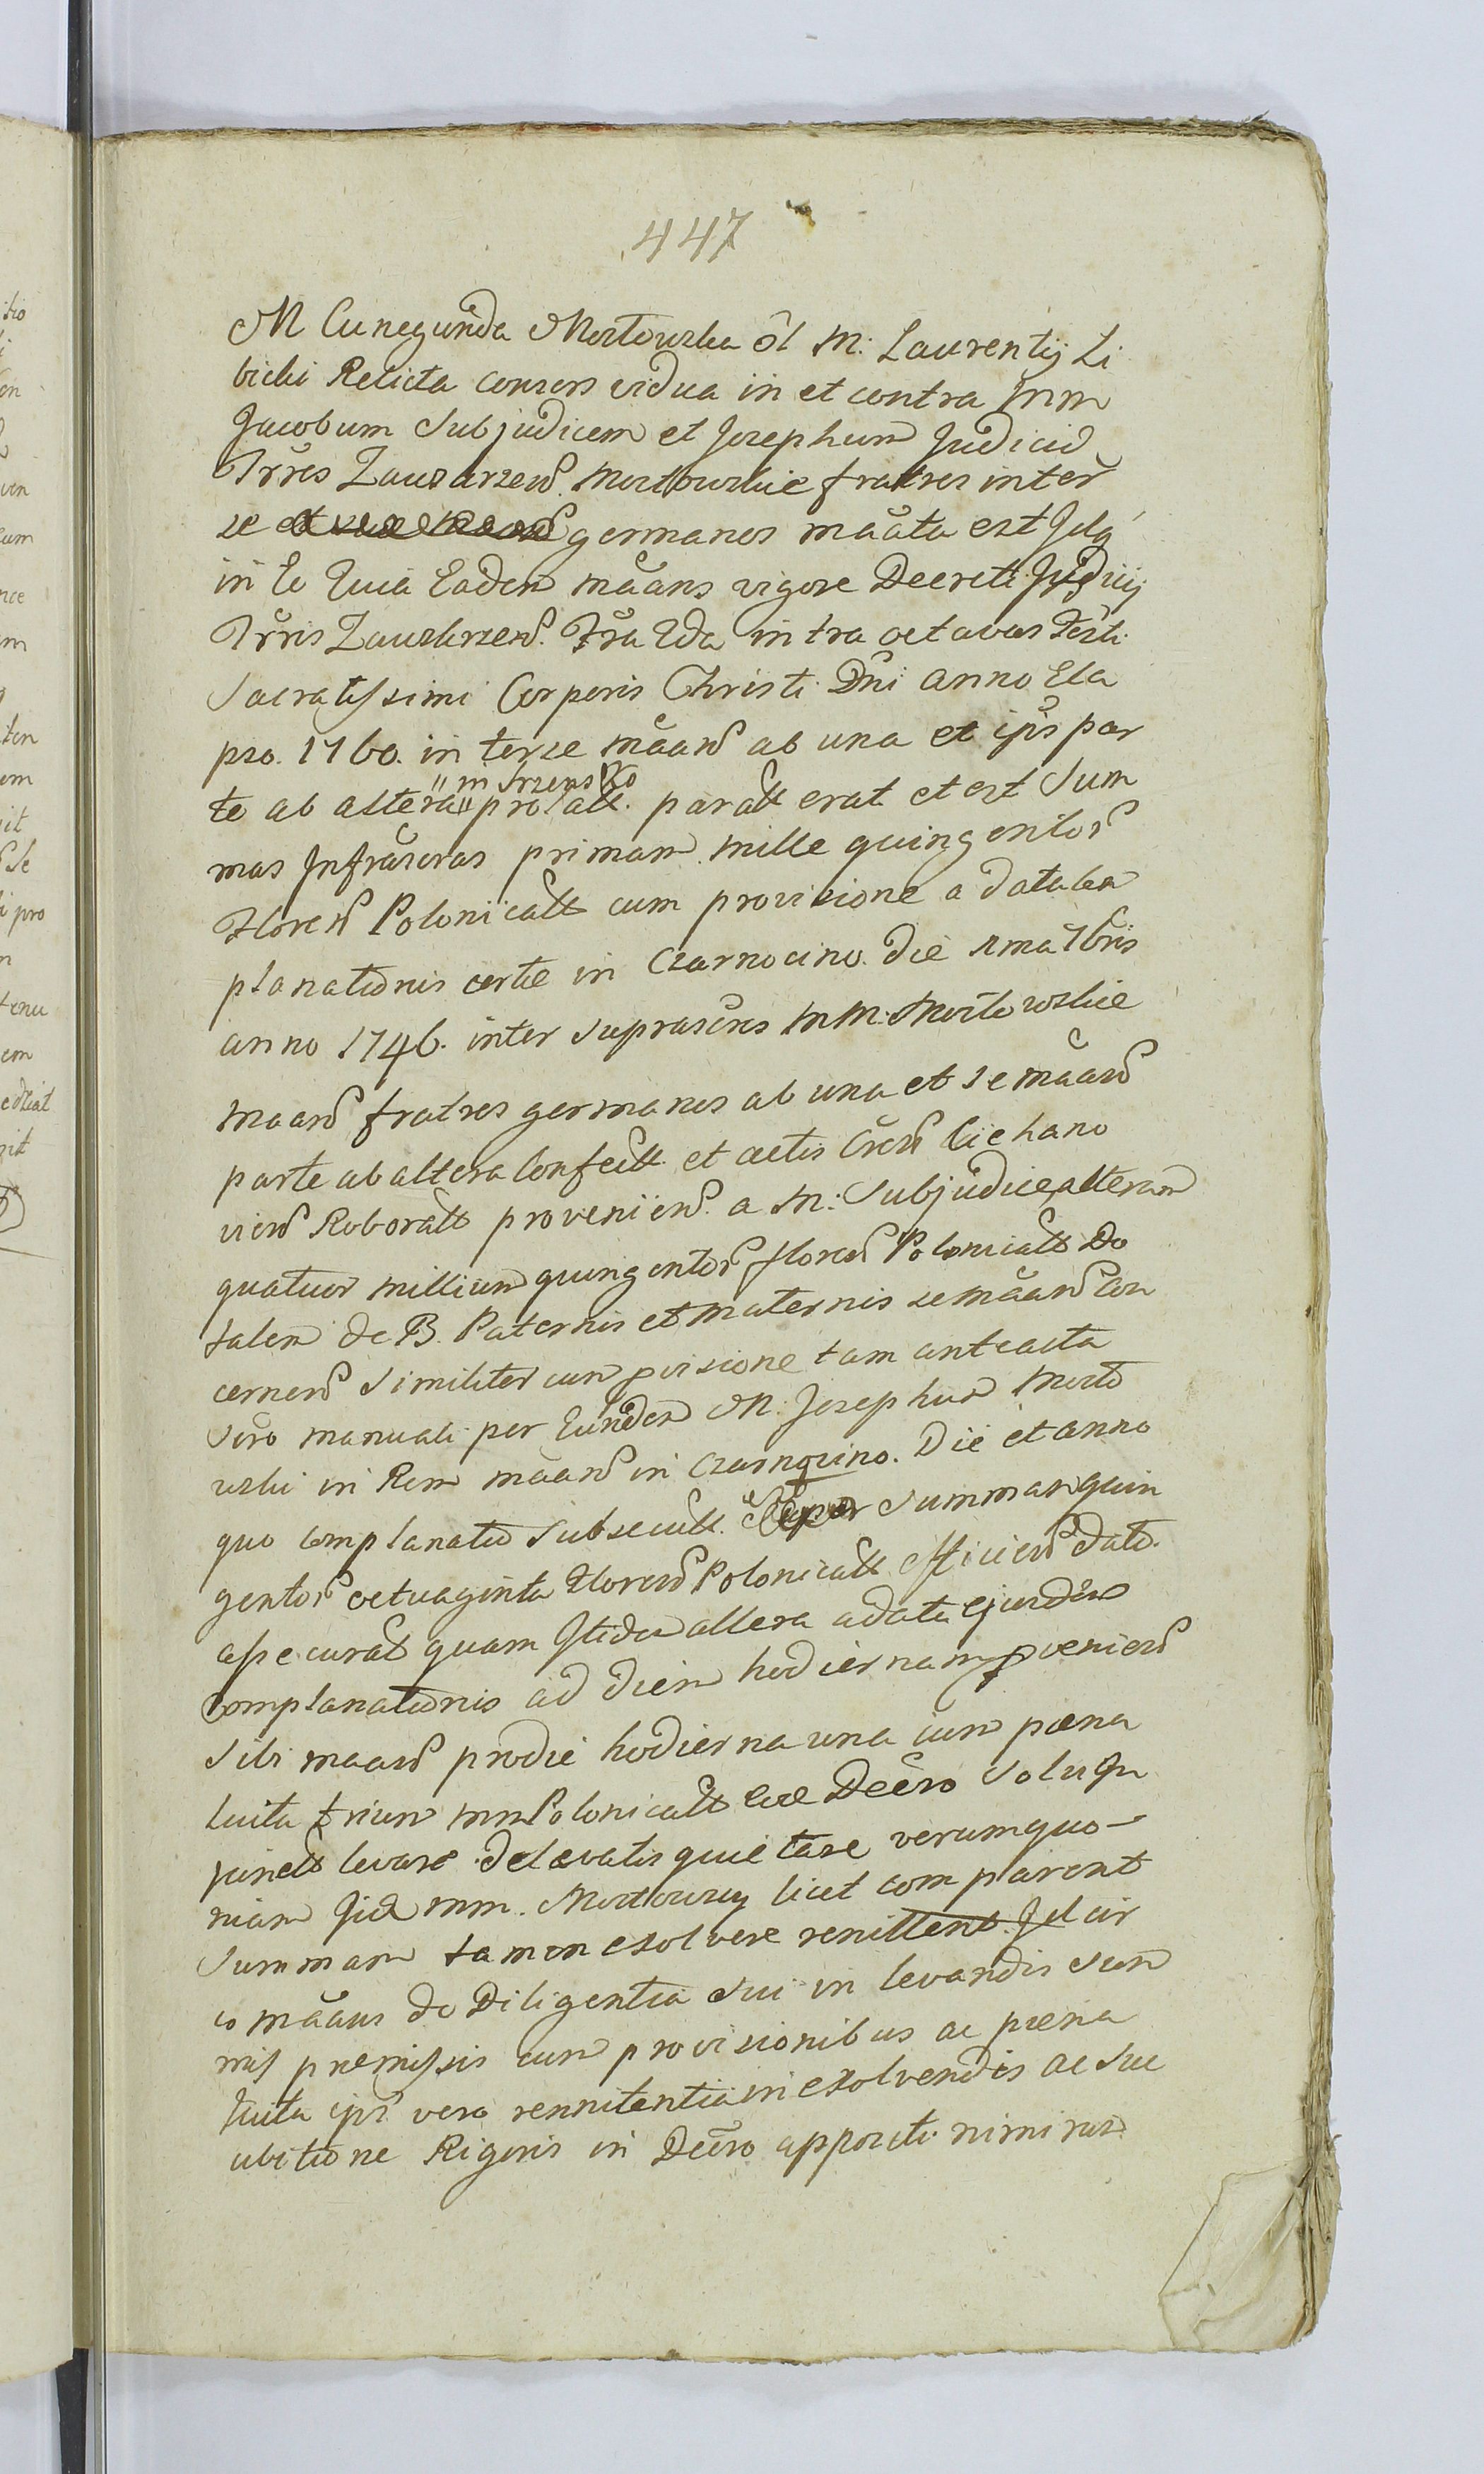 447
M Cunegunda Mostowska ol M: Laurentij Li
bicki Relicta consors vidua in et contra MM
Jacobum Subjudicem et Josephum Judicid
Trris Zawzkrzen. Mostowskie fratres inter
se germanos maata est
in Eo Quia Eadem maans vigore Decreti Judicij
Trris Zawzkrzen. Fra 2da intra octavas Festi
Sacratissimi Corporis Christi Dni anno Ela
pso. 1760. inter se maans ab una et ips par
te ab altera "in Srzensko" prolatt. paratt erat et est Sum
mas Infrascras primam mille quingentor
Floren Polonicatt cum provisione a data Com
planationis certe in Czarnocino. Die 1ma 7bris
anno 1746. inter suprascros MM: Mostowskie
maans fratres germanos ab una et se maans
parte ab altera Confectt. et actis Cren Ciechano
vien Roboratt provenien. a M: Subjudice alteram
quatuor millium quingentor floren Polonicatt Do
talem de B. Paternis et Maternis se maans con
cernen Similiter cum pvisione tam anteacta
Scro manuali per Eundem M: Josephum Mosto
wski in Rem maans in Czarnocino. Die et anno
quo complanatio subsecutt. Super Summam quin
gentor octuaginta Floren Polonicatt efficien dato.
assecurat quam Itidem altera a data ejusdem
Complanationis ad diem hodiernam pvenien
Sibi maans pro die hodierna una cum poena
luita trium mm Polonicatt Decro
levare. de levatis quietare verumquo-
niam MM. Mostowscy licet comparent
Summam tamen exolvere renittent.
maans de Diligentia Sui in levandis Sum
mis premissis cum provisionibus ac poena
luita ips vero rennitentia in exolvendis ac Suc
ubitione Rigoris in Decro appositi nimirum